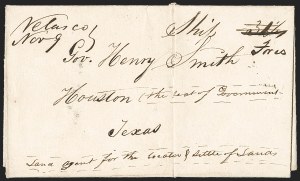 Velasco
Nov 9
Ship
Gov. Henry Smith
Houston or the seat of Government
Texas
Land for the location & settle of Lands